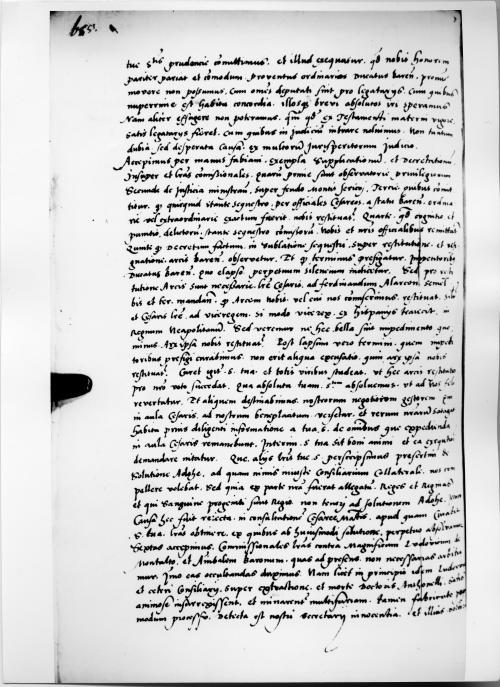 685.
tue s. prudencie committimus. et illud exequatur. quod nobis honorem
pariter pariat et comodum. proventus ordinarios Ducatus baren. pro
movere non possumus. Cum omnes deputati sint pro legatarijs. Cum quibus
nuperrime est habita concordia. illosque brevi absolutos iri speramus
Nam aliter effugere non poteramus. ex Testamenti materni vigore
satis legatarijs fieret. Cum quibus in Judicium intrare noluimus. Non tantum
dubia, sed desperata Causa, ex multorum Jurisperitorum Judicio.
Accepimus per manus fabiani. exempla supplicationum. et Decretationum
Insuper et literas commissionales. quarum prime sunt observatorie privilegiorum
Secunde de Justicia ministranda, super feudo Montis serico, Tercie quibus
quicquid stante sequestro. per officiales Cesareos, a statu baren. ordina
rie vel extraordinarie exactum fuerit. nobis restituat. Quarte. cognitio et
punitio, delictorum, stante sequestro comissorum nobis et nostris officialibus remittat.
Quinte Decretum factum, in sublatione sequestri, super restitutione. et
gnatione. arcis baren. observetur. Et terminus prefigatur. Impetitoribus
Ducatus baren. quo elapso perpetuum silencium indicetur. Sed pro resti
tutione Arcis sunt necessarie litere Cesaris, ad ferdinandum Alarcon, semel
bis et ter. mandando, Arcem nobis vel cui nos comiserimus, restituat.
et Cesaris litere, ad viceregem, si modo vicerex, ex hispanijs traiecit, in
Regnum Neapolitanum. Sed veremur ne hec bella sint impedimento, quo
minus Arx ipsa nobis restituatur. Post lapsum vero termini, quem impeti
toribus prefigi curabimus, non erit aliqua excusatio. quin arx ipsa nobis
restituatur. Curet igitur s. tua. et totis viribus studeat. ut hec arcis restitutio
pro nostro voto succedat. Qua absoluta tuam s. absolvemus. ut ad nos
revertatur. Et aliquem destinabimus, nostrorum negotiorum gestorem
in aula Cesaris, ad nostrum beneplacitum versetur. et rerum nostrarum satagat
habita prius diligenti informatione a tua s. de omnibus que expedienda
in aula Cesaris remanebunt. Interim s. tua sit boni animi et ea exequi
demandare nitatur. Que alijs literis tue s. perscripsimus presertim de
solutione Adohe, ad quam nimis iniuste Consiliarium Collaterale. nos com
pellere volebat. Sed quia ex parte nostra fuerat allegatum Reges et Reginas
et qui sanguine progeniti sunt Regio. non teneri ad solutionem Adohe.
Causa hec fuit reiecta in consultatione Cesaree Matis. apud quam Curabit
s. tua. literas obtinere. ex quibus ab huiusmodi solutione, perpetuo absolvamur
Septas accepimus, Commissionales literas contra Magnificum Ludovicum de
Montalto, et Anibalem baronum, quas ad presens, non necessarias arbitra
mur. Imo eas occultandas duximus. Nam licet in principio idem Ludovicus
et ceteri Consiliarij, super extraditione, et morte Doctoris Anthonelli,
animose insurrexissent, et minarentur multifariam. Tamen fabricato
modum processu. Detecta est nostri secretarij innocentia. et illius